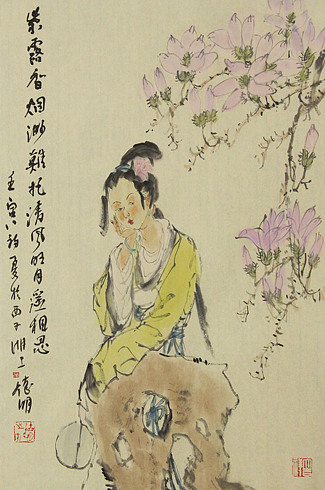 紫露香烟渺難托清风明月遥相思
壬寅初夏於西子湖上